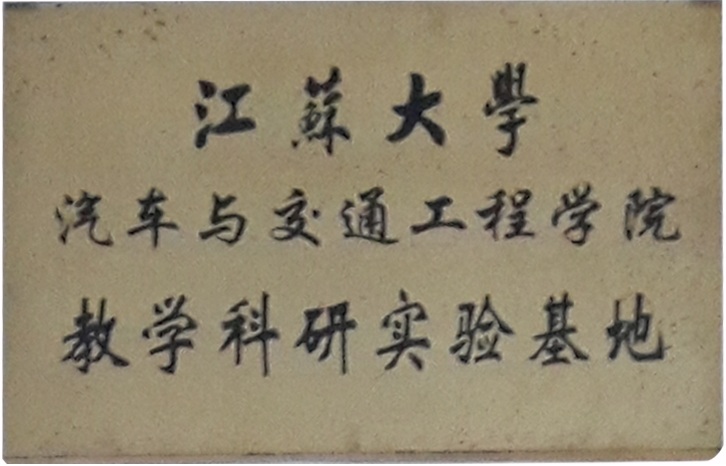 江蘇大學
汽车与交通工程学院
教学科研实验基地